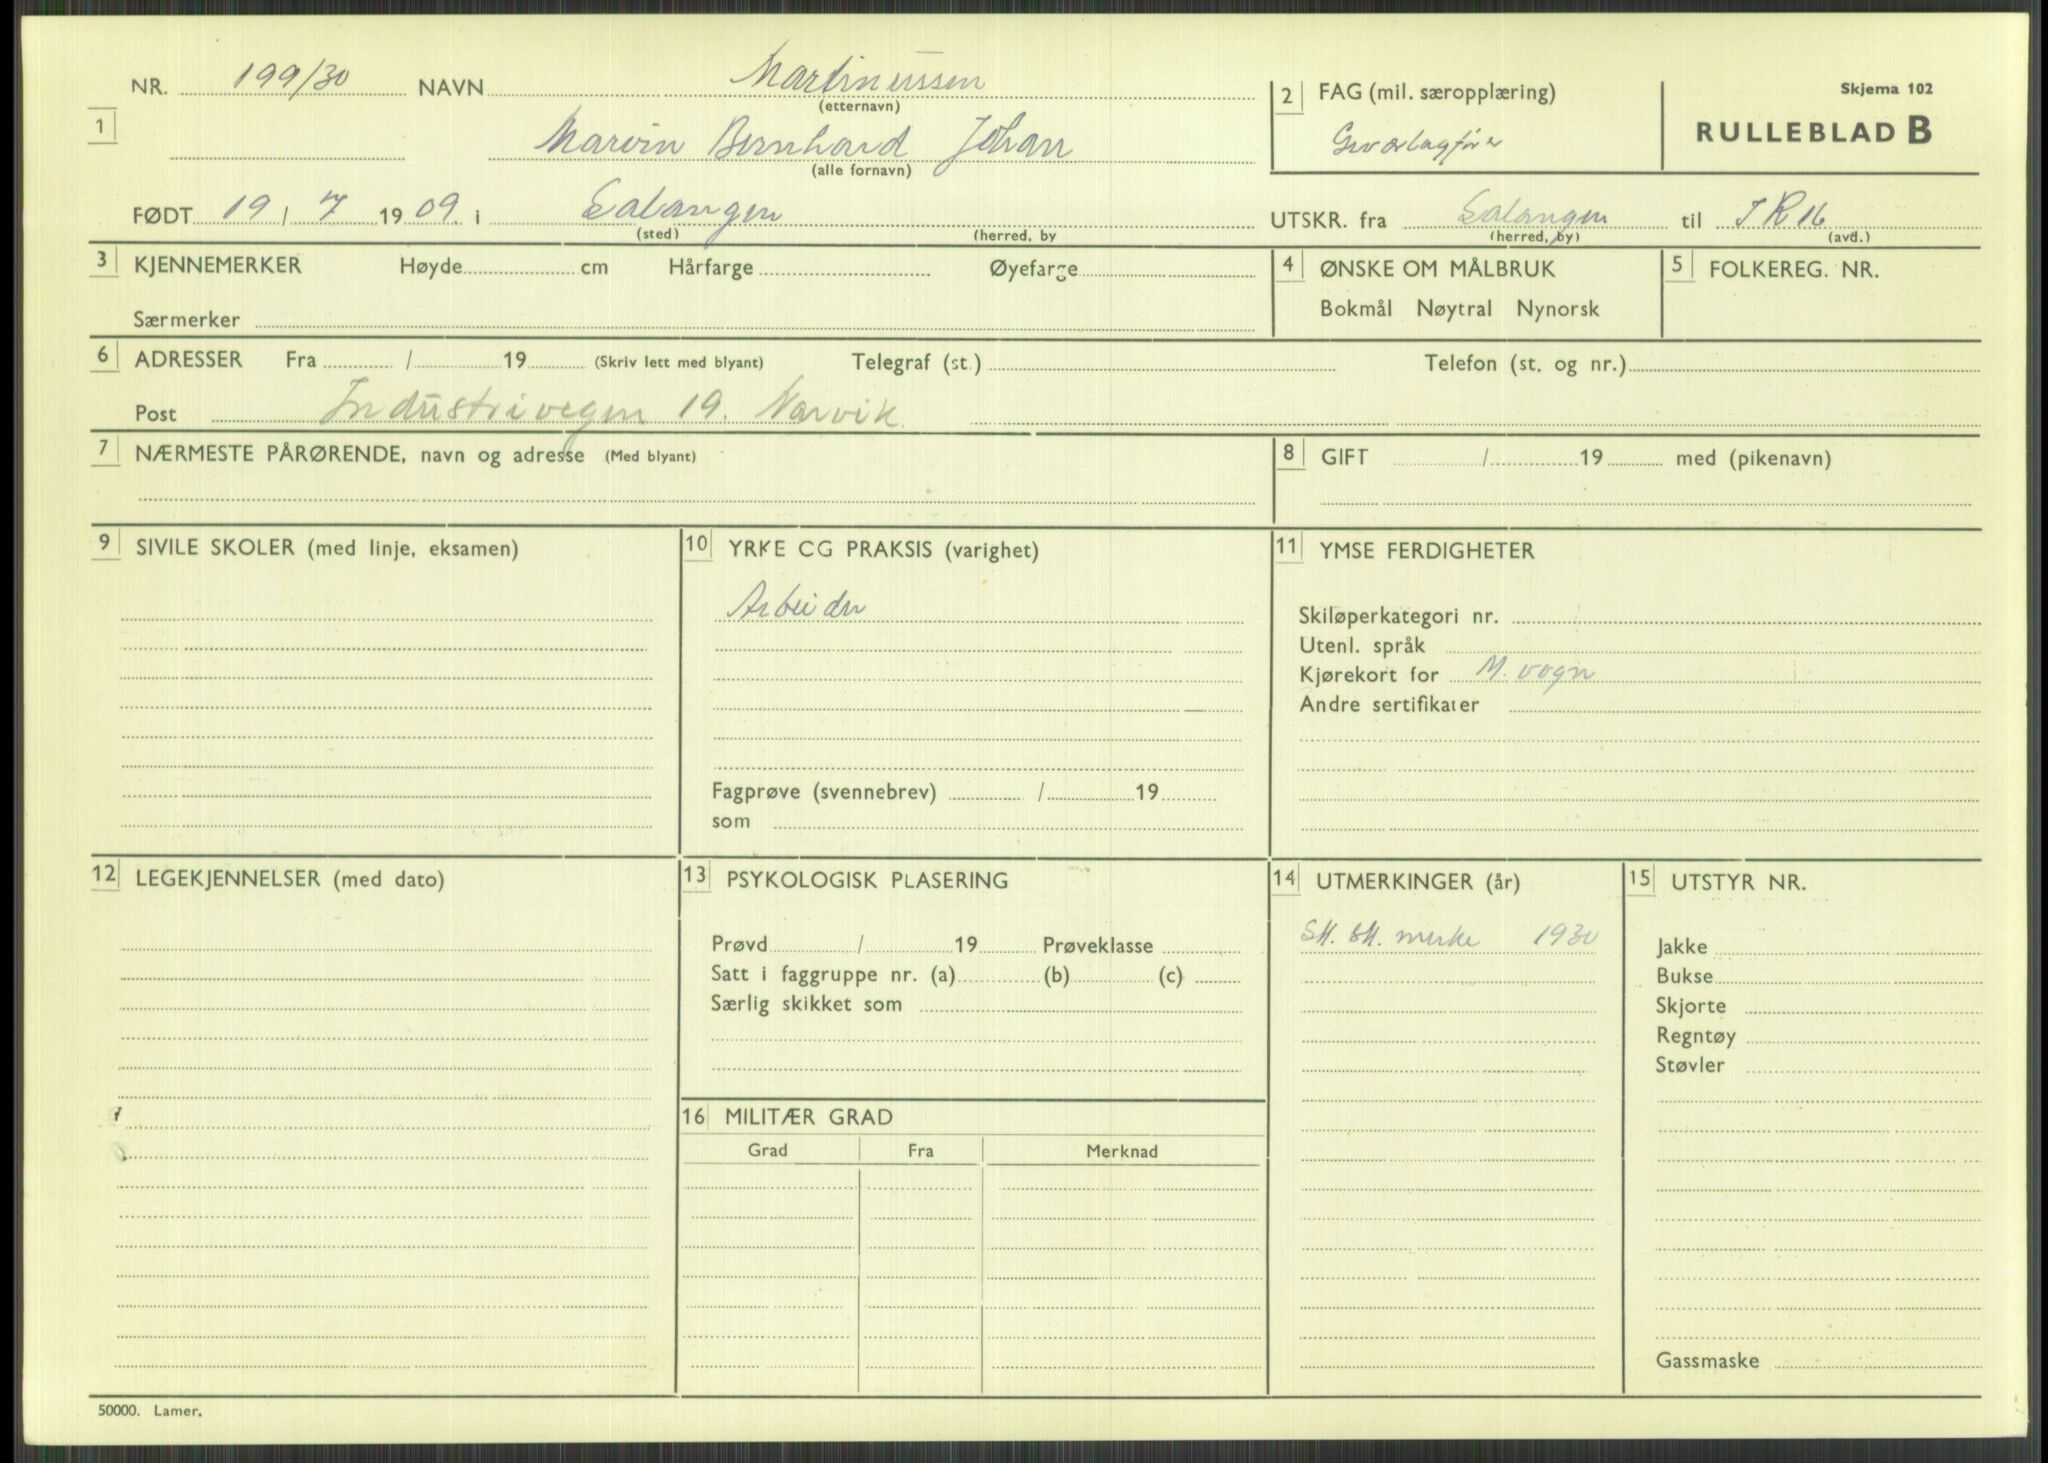 NR. 199/30 NAVN Martinussen
(etternavn)
1
Marvin Bernhard Johan
(alle fornavn)
2 FAG (mil. særopplæring)
Skjema 102
RULLEBLAD B
FØDT 19 / 7 1909 i Salangen
(sted) (herred, by
UTSKR. fra Salangen til I R 16
(herred, by) (avd.)
3 KJENNEMERKER Høyde cm Hårfarge Øyefarge
Særmerker
4 ØNSKE OM MÅLBRUK
Bokmål Nøytral Nynorsk
5 FOLKEREG. NR.
6 ADRESSER Fra / 19 (Skriv lett med blyant) Telegraf (st.) Telefon (st. og nr.)
Post Industrivegen 19. Narvik
7 NÆRMESTE PÅRØRENDE, navn og adresse (Med blyant)
8 GIFT / 19 med (pikenavn)
9 SIVILE SKOLER (med linje, eksamen)
10 YRKE OG PRAKSIS (varighet)
Arbeider
Fagprøve (svennebrev) / 19
som
11 YMSE FERDIGHETER
Skiløperkategori nr.
Utenl. språk
Kjørekort for M. vogn
Andre sertifikater
12 LEGEKJENNELSER (med dato)
13 PSYKOLOGISK PLASERING
Prøvd / 19 Prøveklasse
Satt i faggruppe nr. (a) (b) (c)
Særlig skikket som
14 UTMERKINGER (år)
merke 1930
15 UTSTYR NR.
Jakke
Bukse
Skjorte
Regntøy
Støvler
Gassmaske
16 MILITÆR GRAD
Grad Fra Merknad
50000. Lamer.